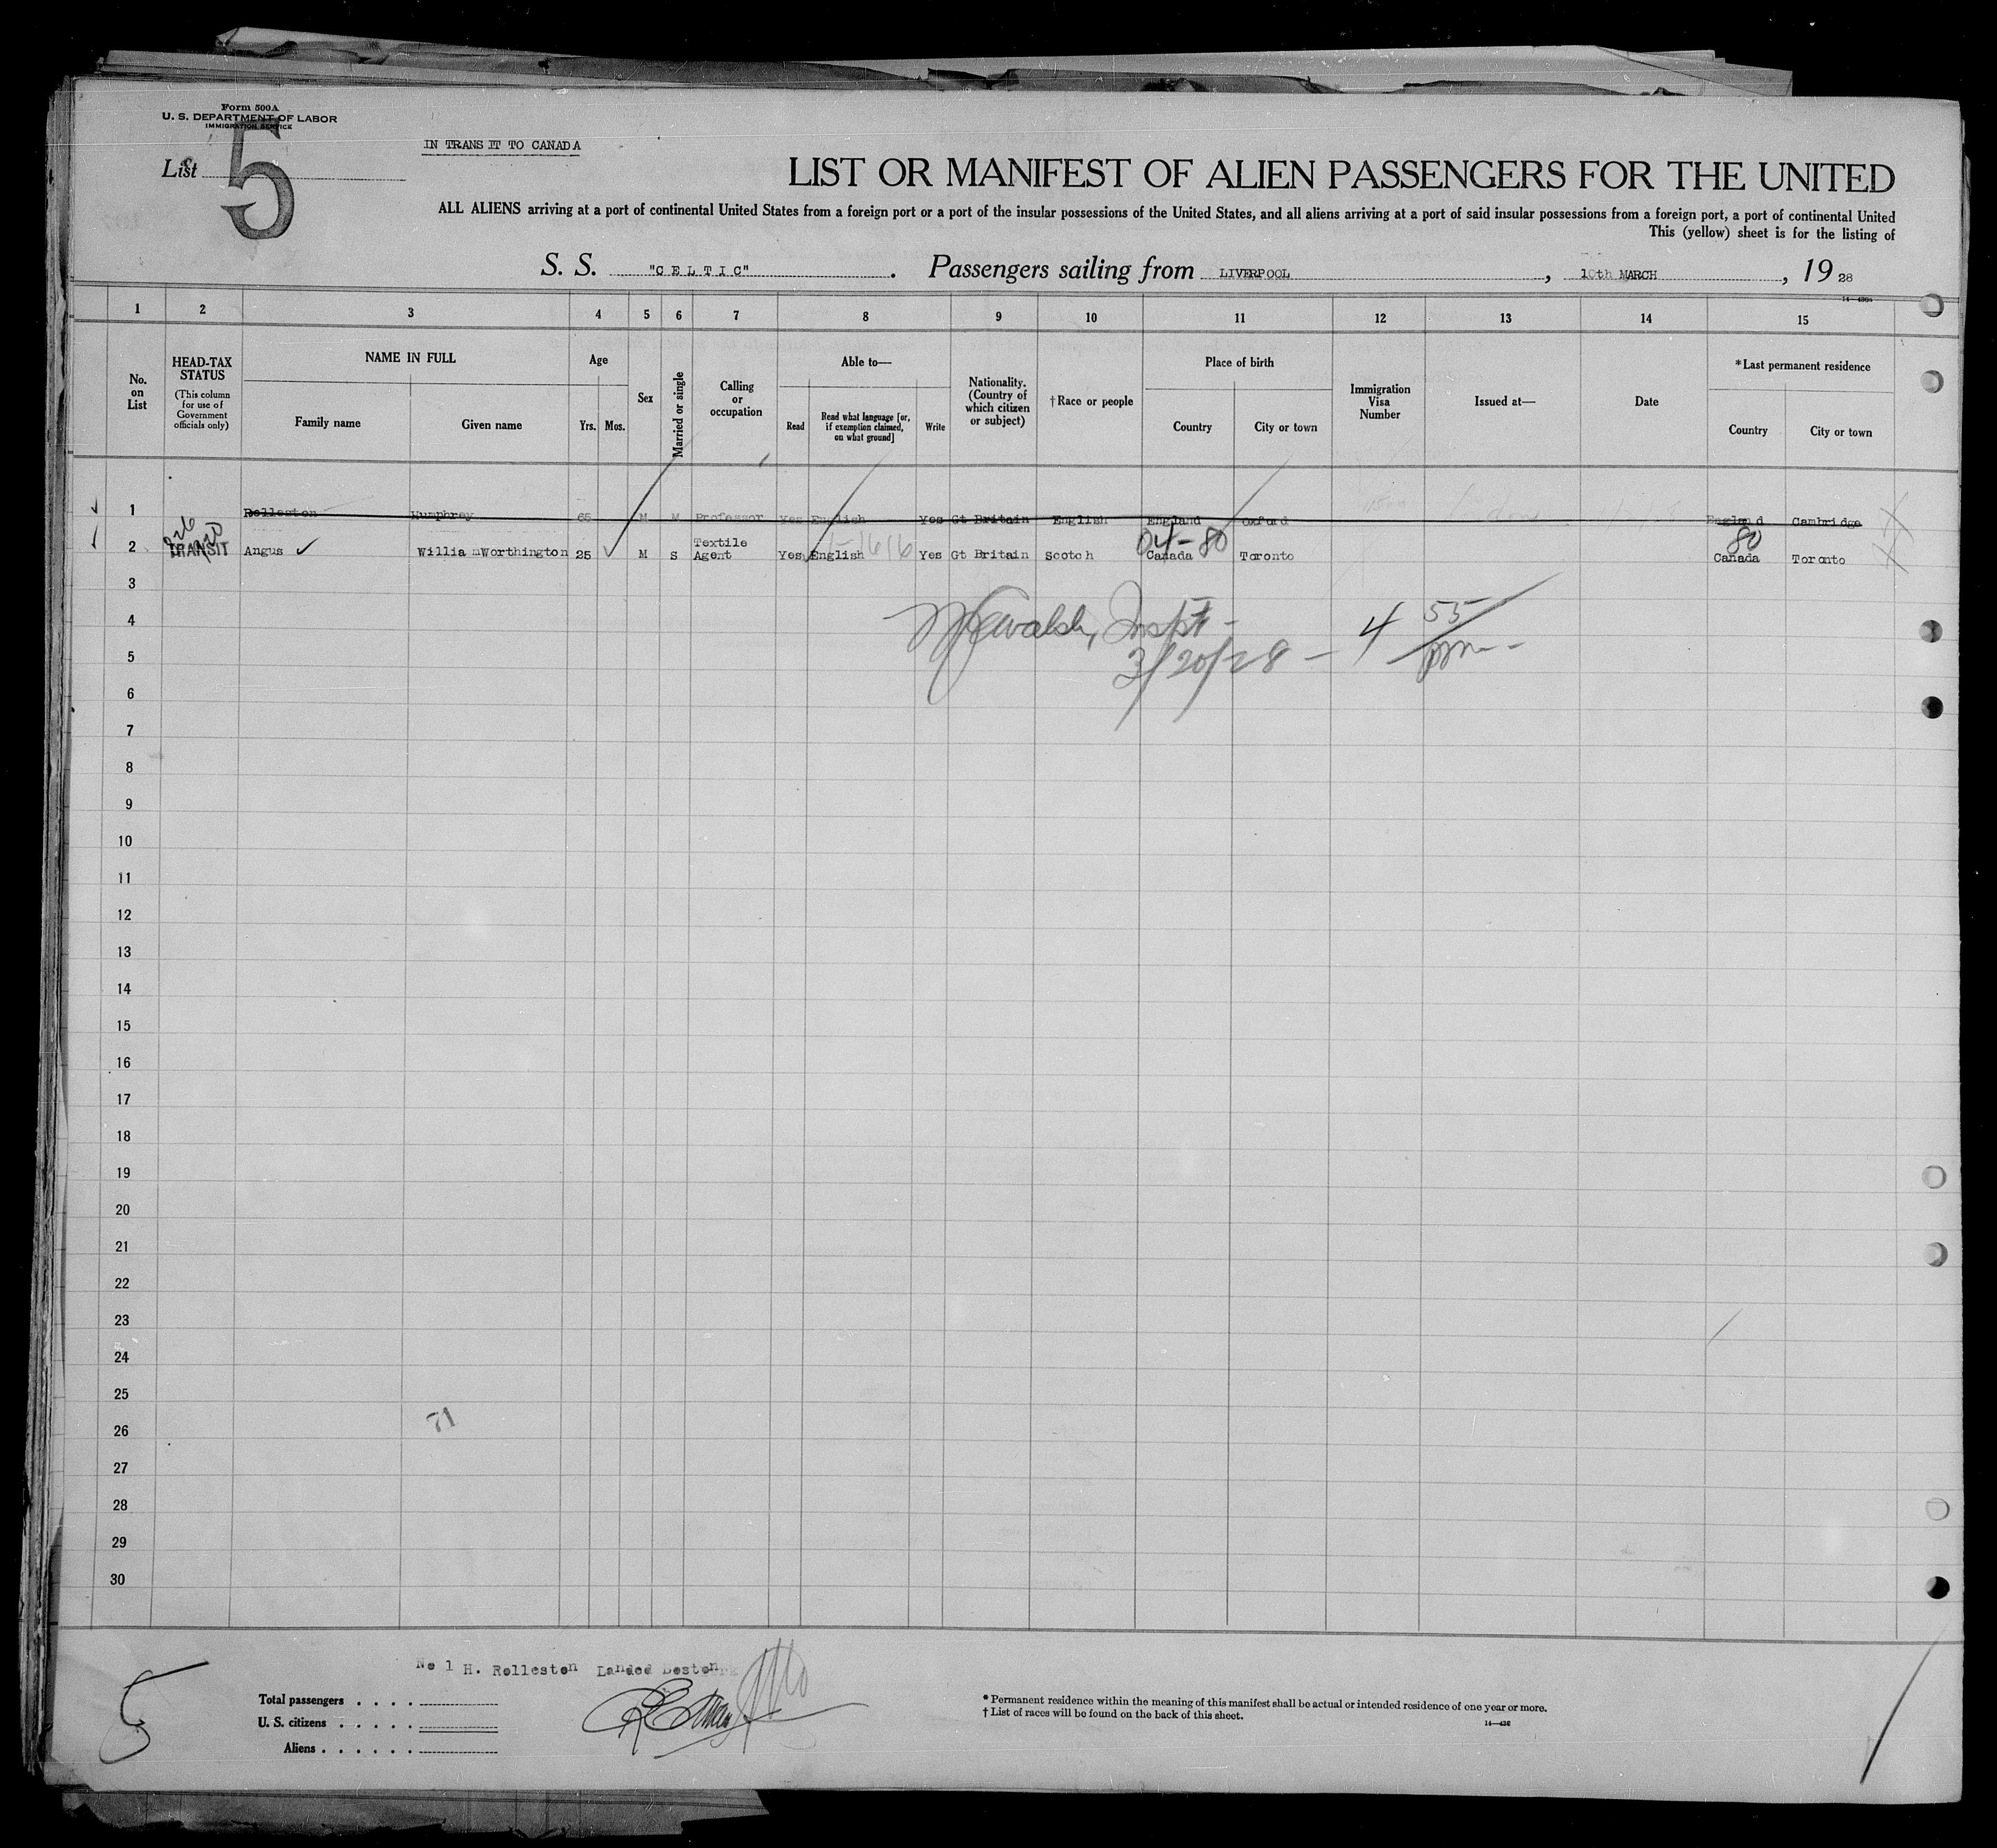 Form 500A
U. S. DEPARTMENT OF LABOR
IMMIGRATION SERVICE
List 5
IN TRANSIT TO CANADA
LIST OR MANIFEST OF ALIEN PASSENGERS FOR THE UNITED
ALL ALIENS arriving at a port of continental United States from a foreign port or a port of the insular possessions of the United States, and all aliens arriving at a port of said insular possessions from a foreign port, a port of continental United
This (yellow) sheet is for the listing of
S. S. "CELTIC". Passengers sailing from LIVERPOOL, 10th MARCH, 1928
1 2 3 4 5 6 7 8 9 10 11 12 13 14 15
No. on List
HEAD-TAX STATUS
(This column for use of Government officials only)
NAME IN FULL
Family name
Given name
Age
Yrs.
Mos.
Sex
Married or single
Calling or occupation
Able to—
Read
Read what language [or, if exemption claimed, on what ground]
Write
Nationality. (Country of which citizen or subject)
†Race or people
Place of birth
Country
City or town
Immigration Visa Number
Issued at—
Date
*Last permanent residence
Country
City or town
1 Rolleston Humphrey 65 M M Professor Yes English Yes Gt Britain English England Oxford England Cambridge
04-80 80
2 TRANSIT Angus William Worthington 25 M S Textile Agent Yes English Yes Gt Britain Scotch Canada Toronto Canada Toronto
3
4
5
3/20/28 - 4 55 pm -
6
7
8
9
10
11
12
13
14
15
16
17
18
19
20
21
22
23
24
25
71
26
27
28
29
30
No 1 H. Rolleston Landed Boston
5
Total passengers . . . .
U. S. citizens . . . . .
Aliens . . . . . .
* Permanent residence within the meaning of this manifest shall be actual or intended residence of one year or more.
† List of races will be found on the back of this sheet.